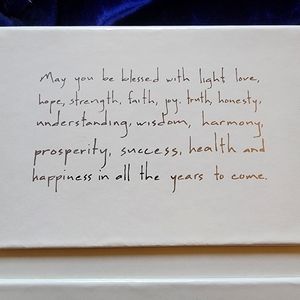 May you be blessed with light love,
hope, strength, faith, joy. truth, honesty,
understanding, wisdom, harmony,
prosperity, success, health and
happiness in all the years to come.